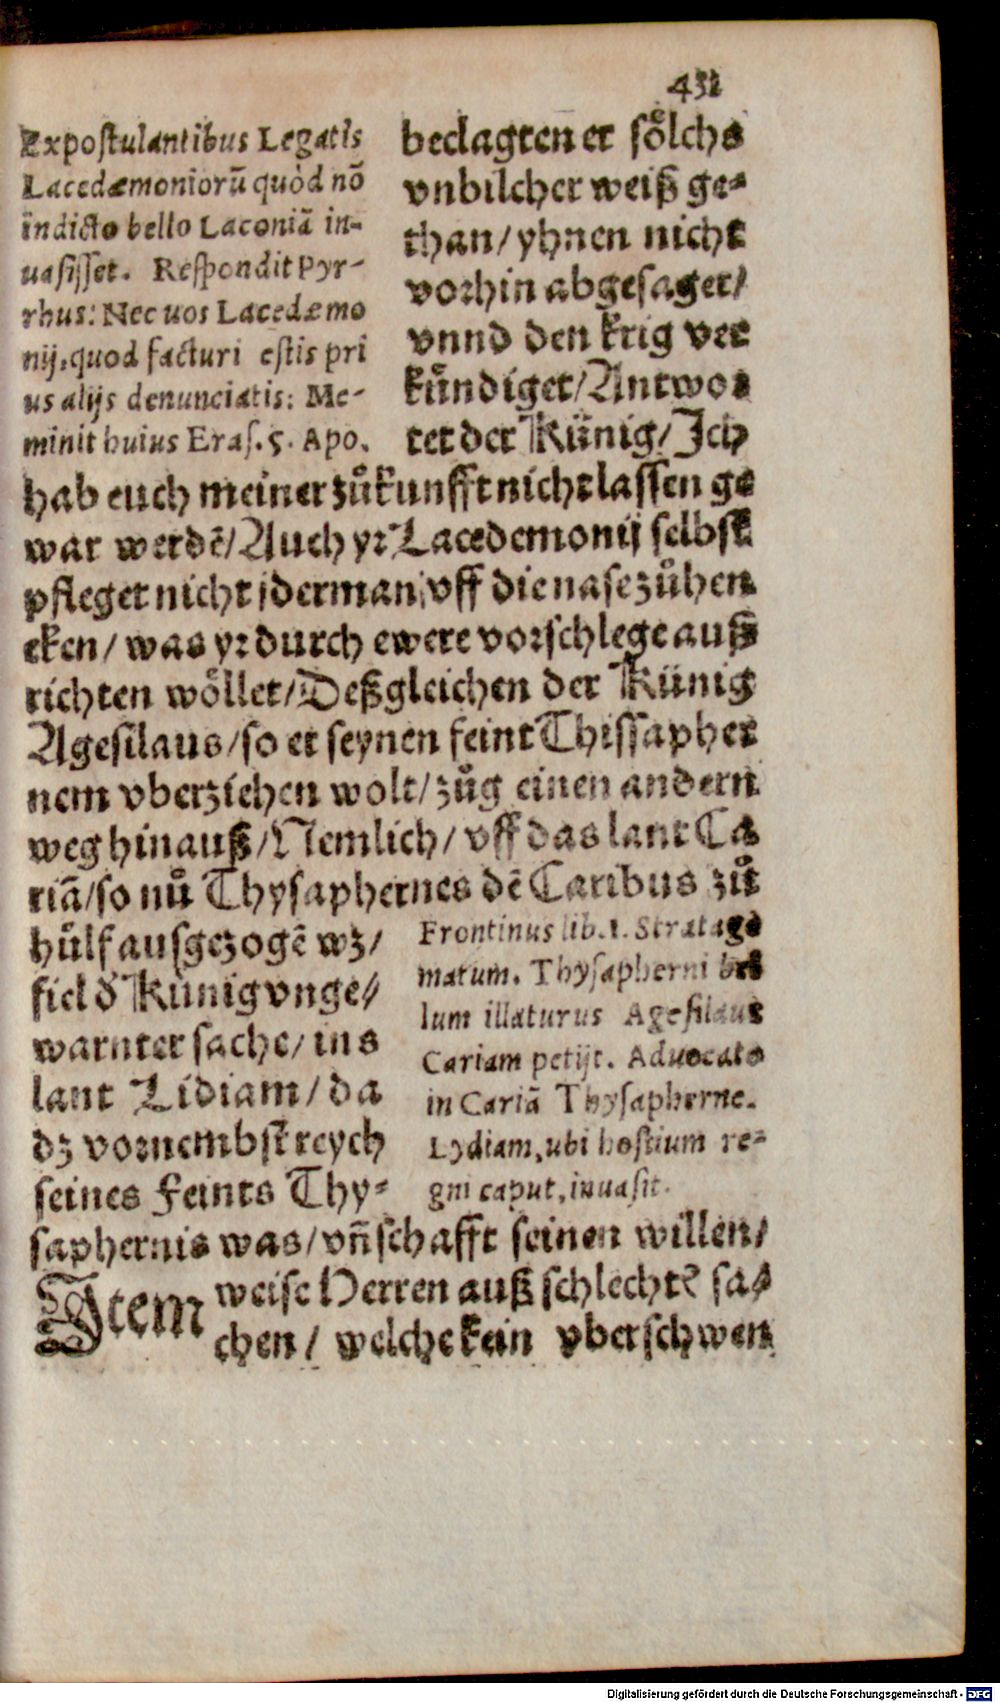 432
Expostulantibus Legatis
Lacedæmoniorũ quòd nõ
indicto bello Laconiã in-
uasisset. Respondit Pyr-
rhus: Nec uos Lacedæmo
nij, quod facturi estis pri
us alijs denunciatis: Me-
minit huius Eras. 5. Apo.
beclagten er soͤlchs
vnbilcher weiß ge-
than/ yhnen nicht
vorhin abgesaget/
vnnd den krig ver
kuͤndiget/ Antwor
tet der Kuͤnig/ Ich
hab euch meiner zuͦkunfft nicht lassen ge
war werdẽ/ Auch yr Lacedemonij selbst
pfleget nicht iderman vff die nase zuͦhen
cken/ was yr durch ewere vorschlege auß
richten woͤllet/ Deßgleichen der Kuͤnig
Agesilaus/ so er seynen feint Thissapher
nem vberziehen wolt/ zuͦg einen andern
weg hinauß/ Nemlich/ vff das lant Ca
riã/ so nuͦ Thysaphernes dẽ Caribus zuͦ
huͤlf ausgezogẽ wz/
fiel d' Kuͤnig vnge-
warnter sache/ ins
lant Lidiam/ da
dz vornembst reych
seines Feints Thy-
Frontinus lib. 1. Stratage
matum. Thysapherni bel
lum illaturus Agesilaus
Cariam petijt. Aduocato
in Cariã Thysapherne.
Lydiam, ubi hostium re-
gni caput, inuasit.
saphernis was/ vñ schafft seinen willen/
Item weise Herren auß schlechtẽ sa-
chen/ welche kein vberschwen
Digitalisierung gefördert durch die Deutsche Forschungsgemeinschaft - DFG